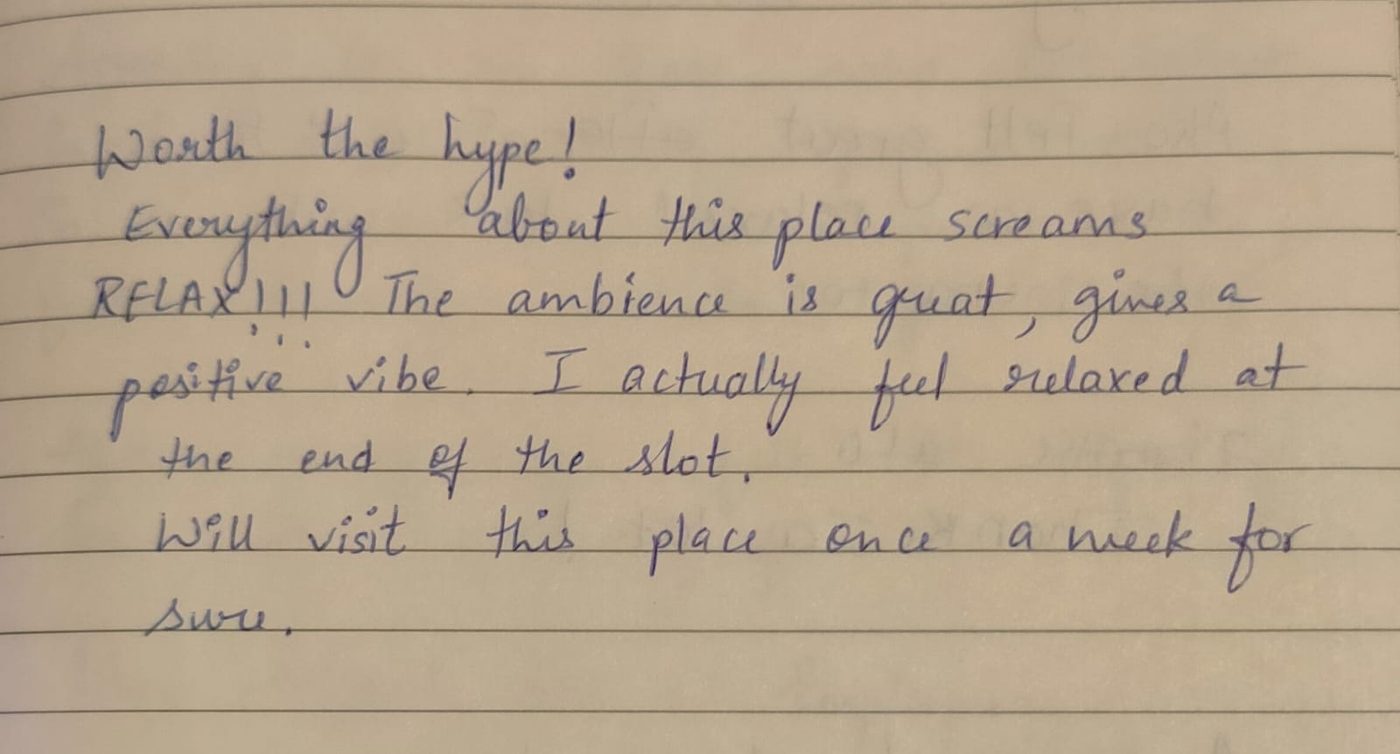 Worth the hype!
Everything about this place screams
RELAX!!! The ambience is great, gives a
positive vibe. I actually feel relaxed at
the end of the slot.
Will visit this place once a week for
sure.